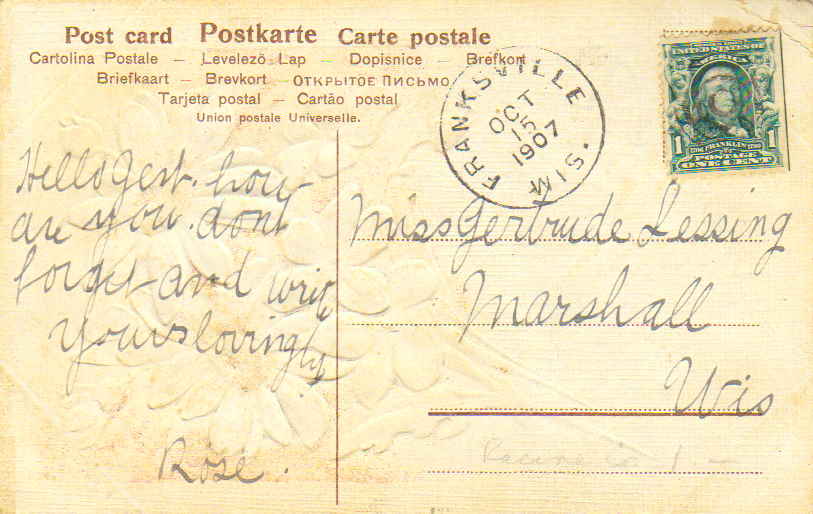 Post card Postkarte Carte postale
Cartolina Postale – Levelező Lap – Dopisnice – Brefkort
Briefkaart – Brevkort – ОТКРЫТОЕ ПИСЬМО
Tarjeta postal – Cartão postal
Union postale Universelle.
FRANKSVILLE WIS.
OCT
15
1907
UNITED STATES OF
AMERICA
1 FRANKLIN 1
POSTAGE
ONE CENT
Hello Gert. how
are you. dont
forget and write
Yours lovingly
Rose.
Miss Gertrude Lessing
Marshall
Wis